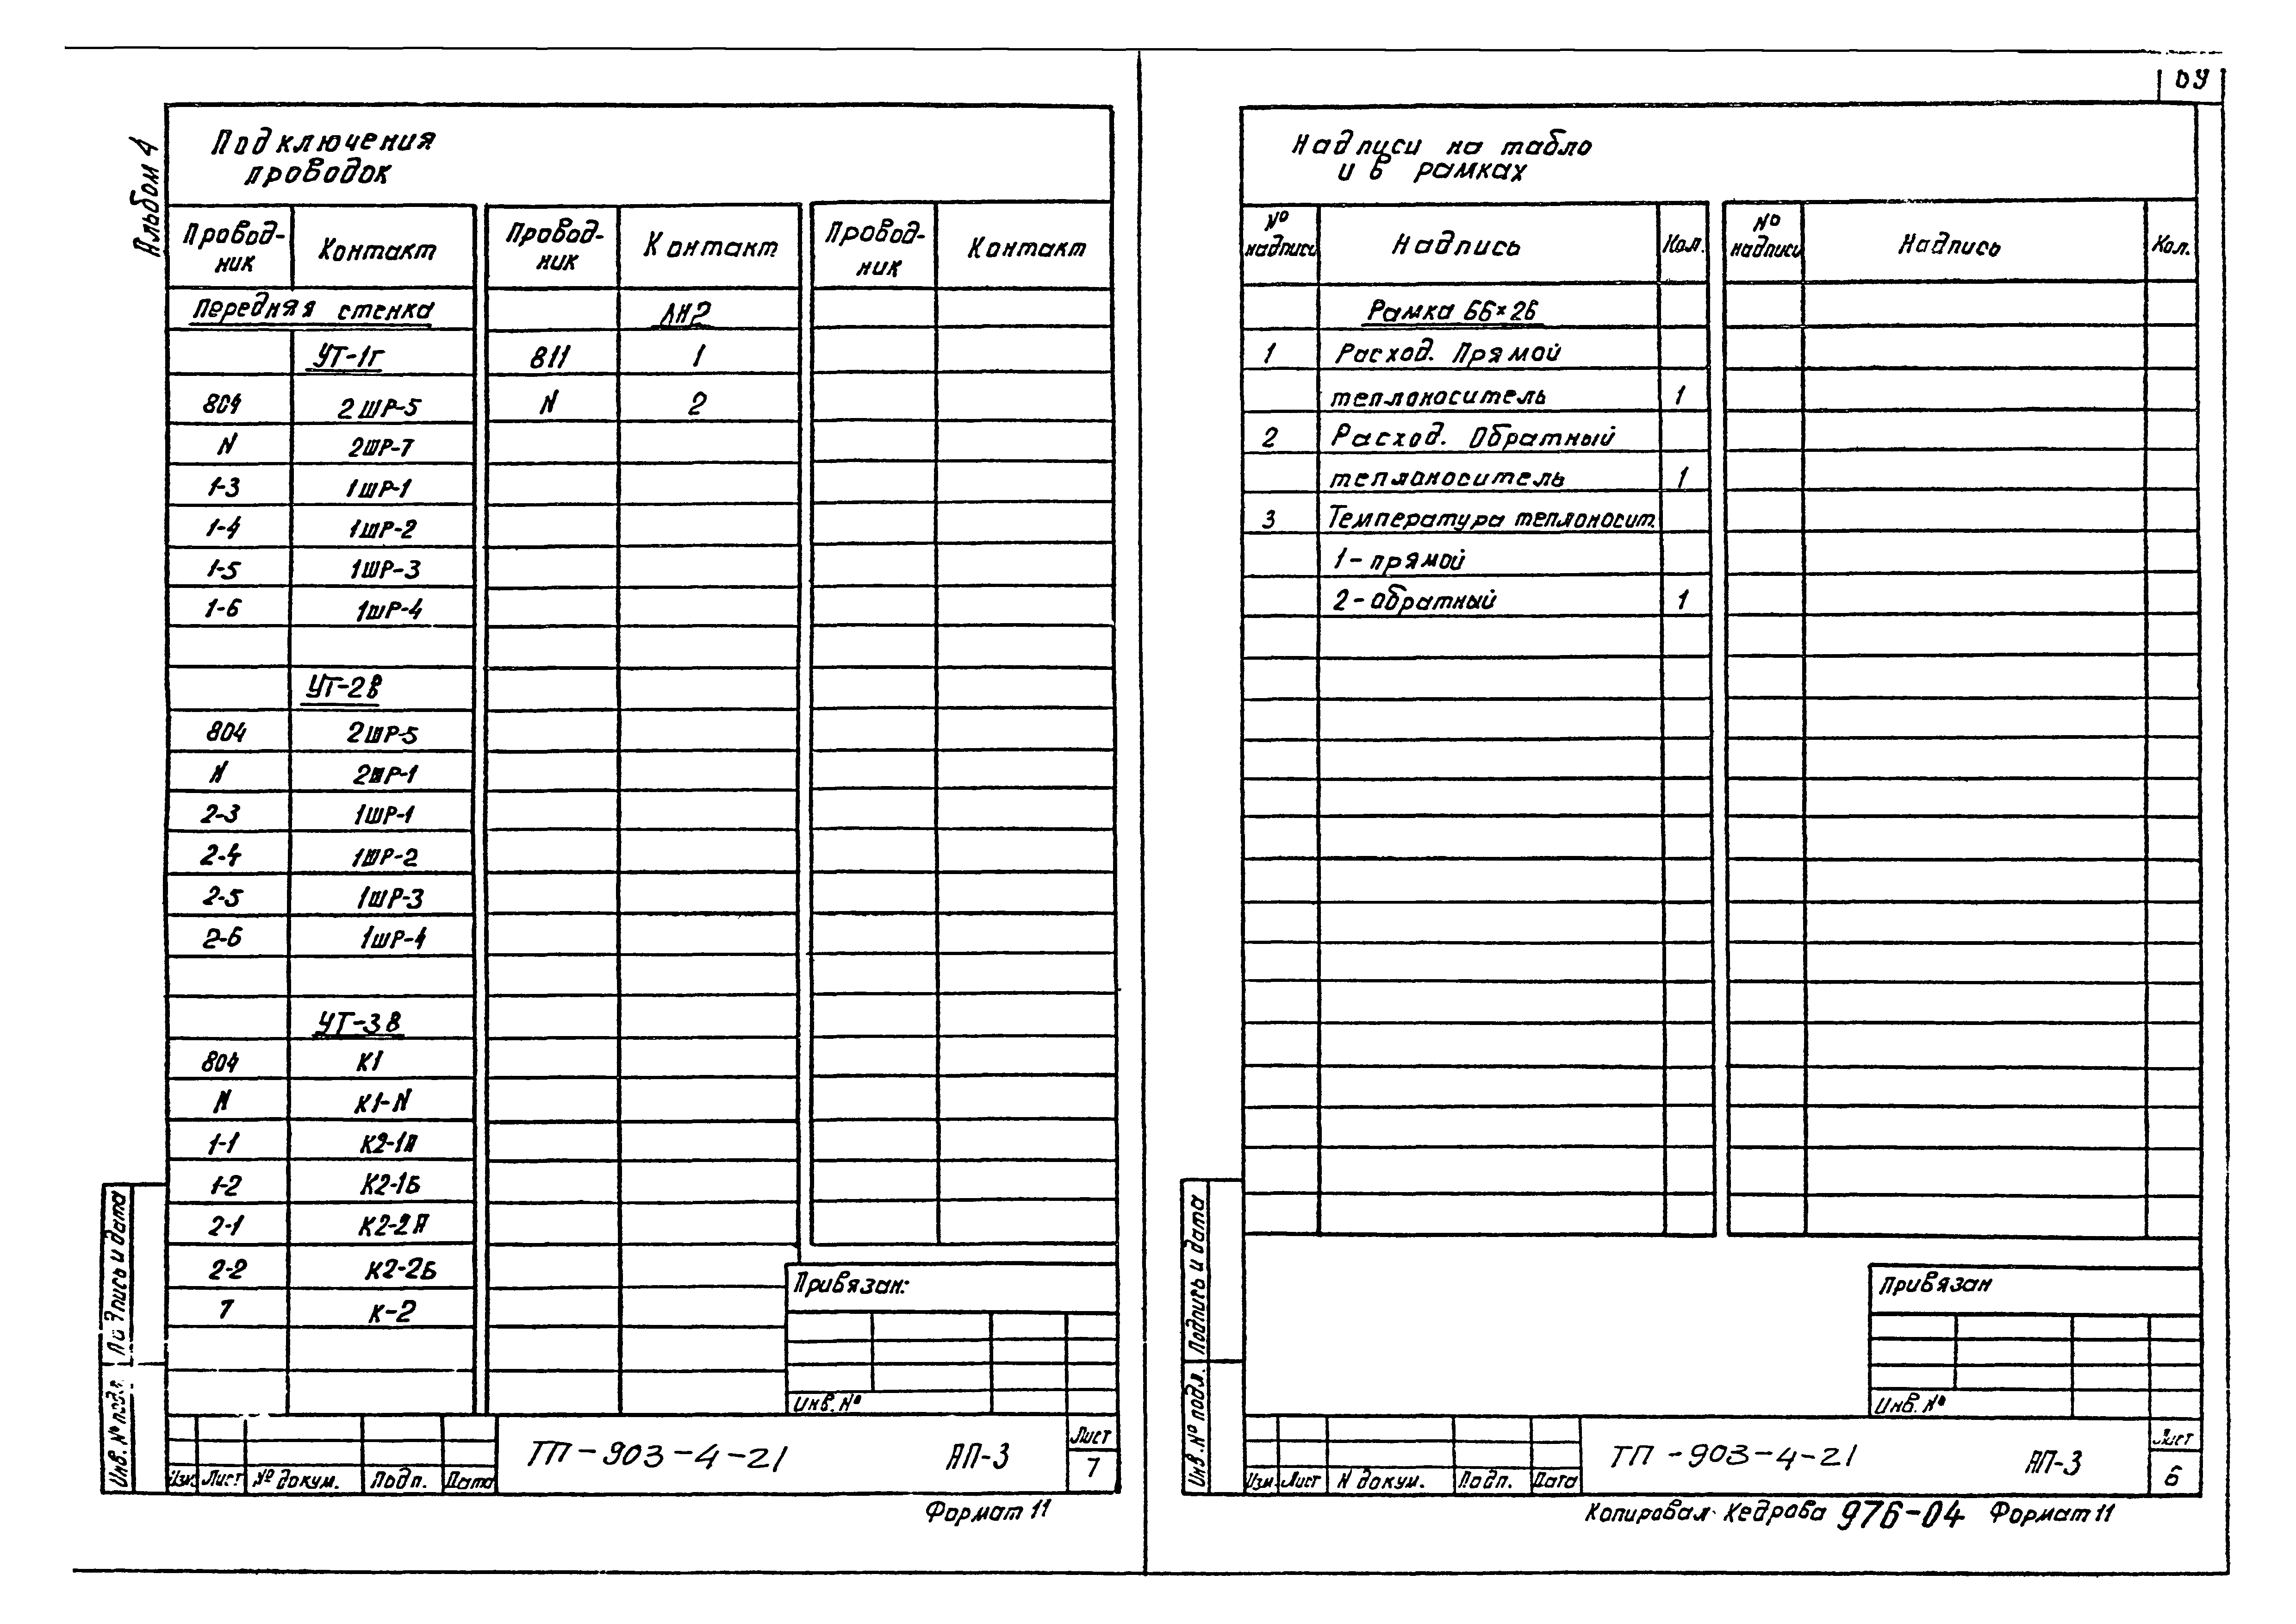 Альбом 4
Подключения
проводок
Провод-
ник Контакт Провод-
ник Контакт Провод-
ник Контакт
Передняя стенка ЛН2
УТ-1г 811 1
804 2ШР-5 N 2
N 2ШР-7
1-3 1ШР-1
1-4 1ШР-2
1-5 1ШР-3
1-6 1ШР-4
УТ-2В
804 2ШР-5
N 2ШР-1
2-3 1ШР-1
2-4 1ШР-2
2-5 1ШР-3
2-6 1ШР-4
УТ-3В
804 К1
N К1-N
1-1 К2-1А
1-2 К2-1Б
2-1 К2-2А
2-2 К2-2Б
7 К-2
Привязан:
Инв. №
Изм. Лист № докум. Подп. Дата
ТП-903-4-21 АП-3
Лист
7
Инв. № подл. Подпись и дата
Формат 11
Надписи на табло
и в рамках
№
надписи Надпись Кол. №
надписи Надпись Кол.
Рамка 66×26
1 Расход. Прямой
теплоноситель 1
2 Расход. Обратный
теплоноситель 1
3 Температура теплоносит.
1-прямой
2-обратный 1
Привязан
Инв. №
Изм. Лист N докум. Подп. Дата
ТП-903-4-21 АП-3
Лист
6
Инв. № подл. Подпись и дата
Копировал Кедрова 976-04 Формат 11